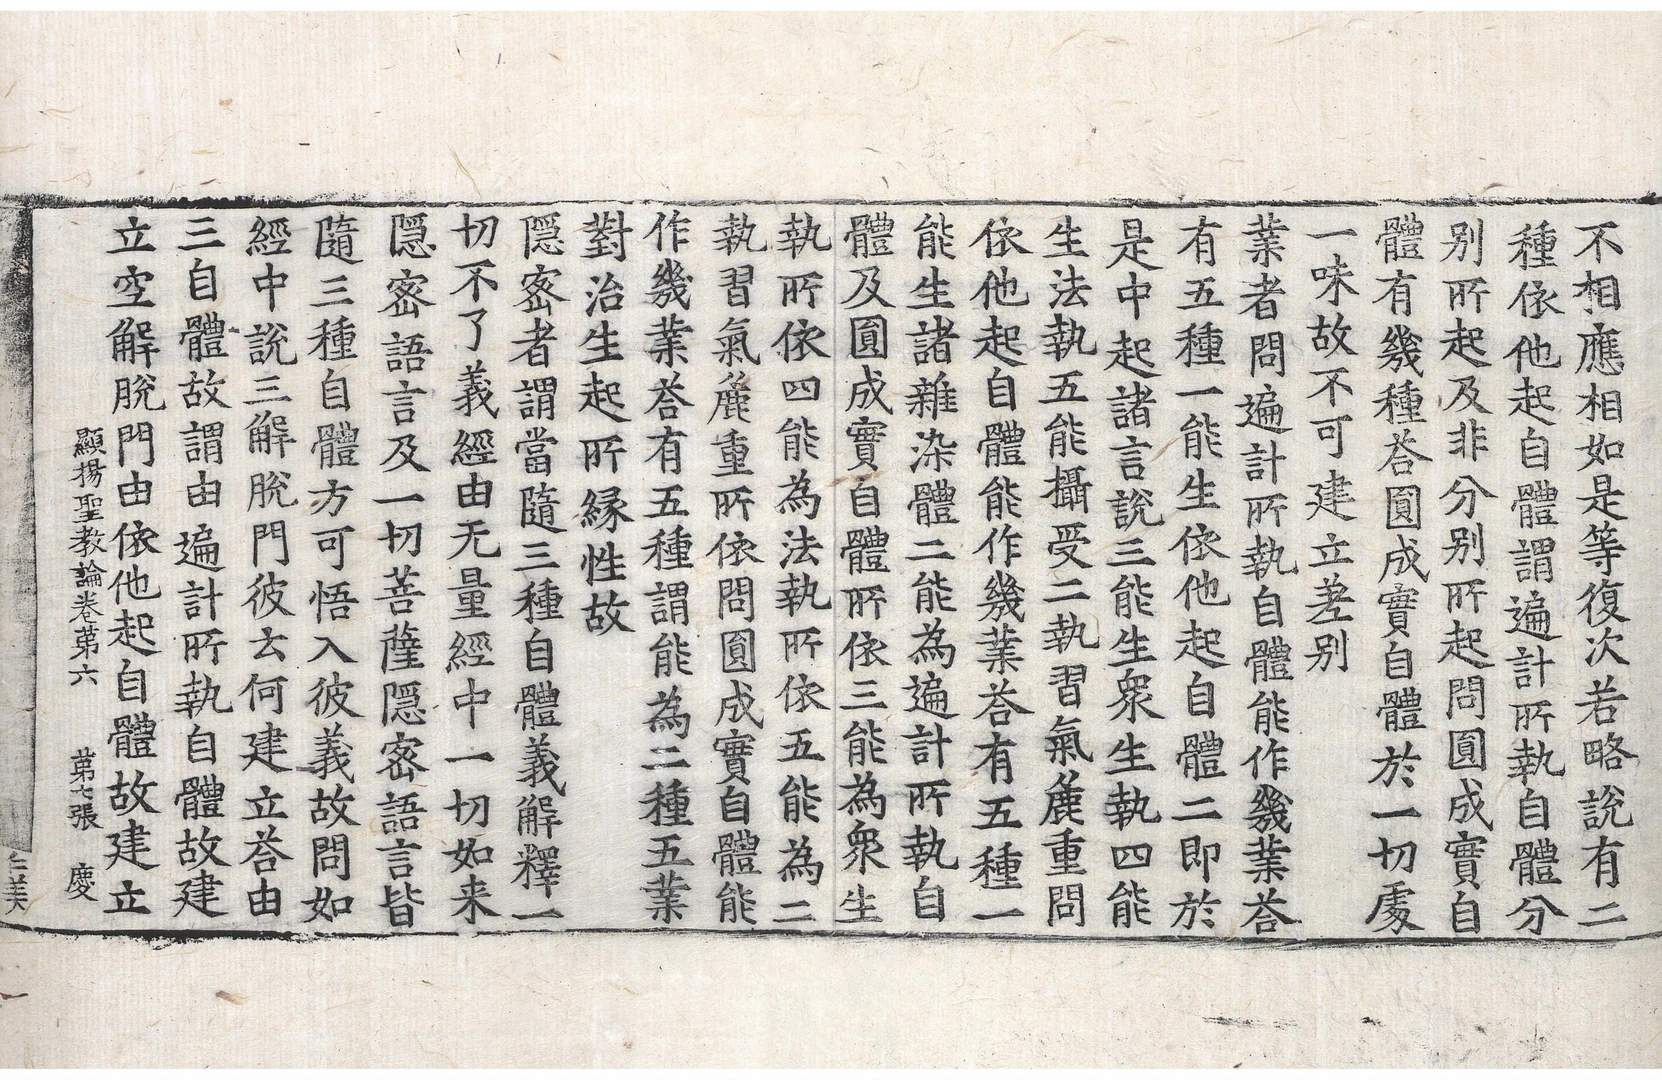 不相應相如是等復次若略說有二
種依他起自體謂遍計所執自體分
别所起及非分别所起問圓成實自
體有幾種荅圓成實自體於一切處
一味故不可建立差别
業者問遍計所執自體能作幾業荅
有五種一能生依他起自體二即於
是中起諸言說三能生衆生執四能
生法執五能攝受二執習氣麁重問
依他起自體能作幾業荅有五種一
能生諸雜染體二能為遍計所執自
體及圓成實自體所依三能為衆生
執所依四能為法執所依五能為二
執習氣麁重所依問圓成實自體能
作幾業荅有五種謂能為二種五業
對治生起所緣性故
隱密者謂當隨三種自體義解釋一
切不了義經由无量經中一切如来
隱密語言及一切菩薩隱密語言皆
隨三種自體方可悟入彼義故問如
經中說三解脫門彼云何建立荅由
三自體故謂由遍計所執自體故建
立空解脫門由依他起自體故建立
顯揚聖教論卷第六 第七張 慶